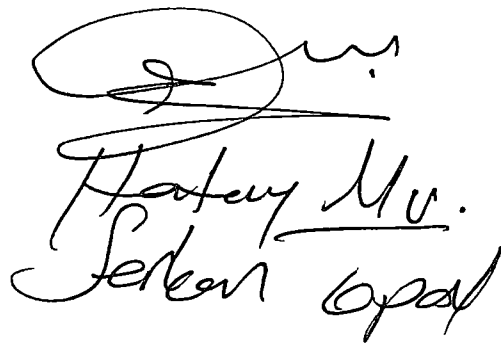 Hatay Mv.
Serkan Topal